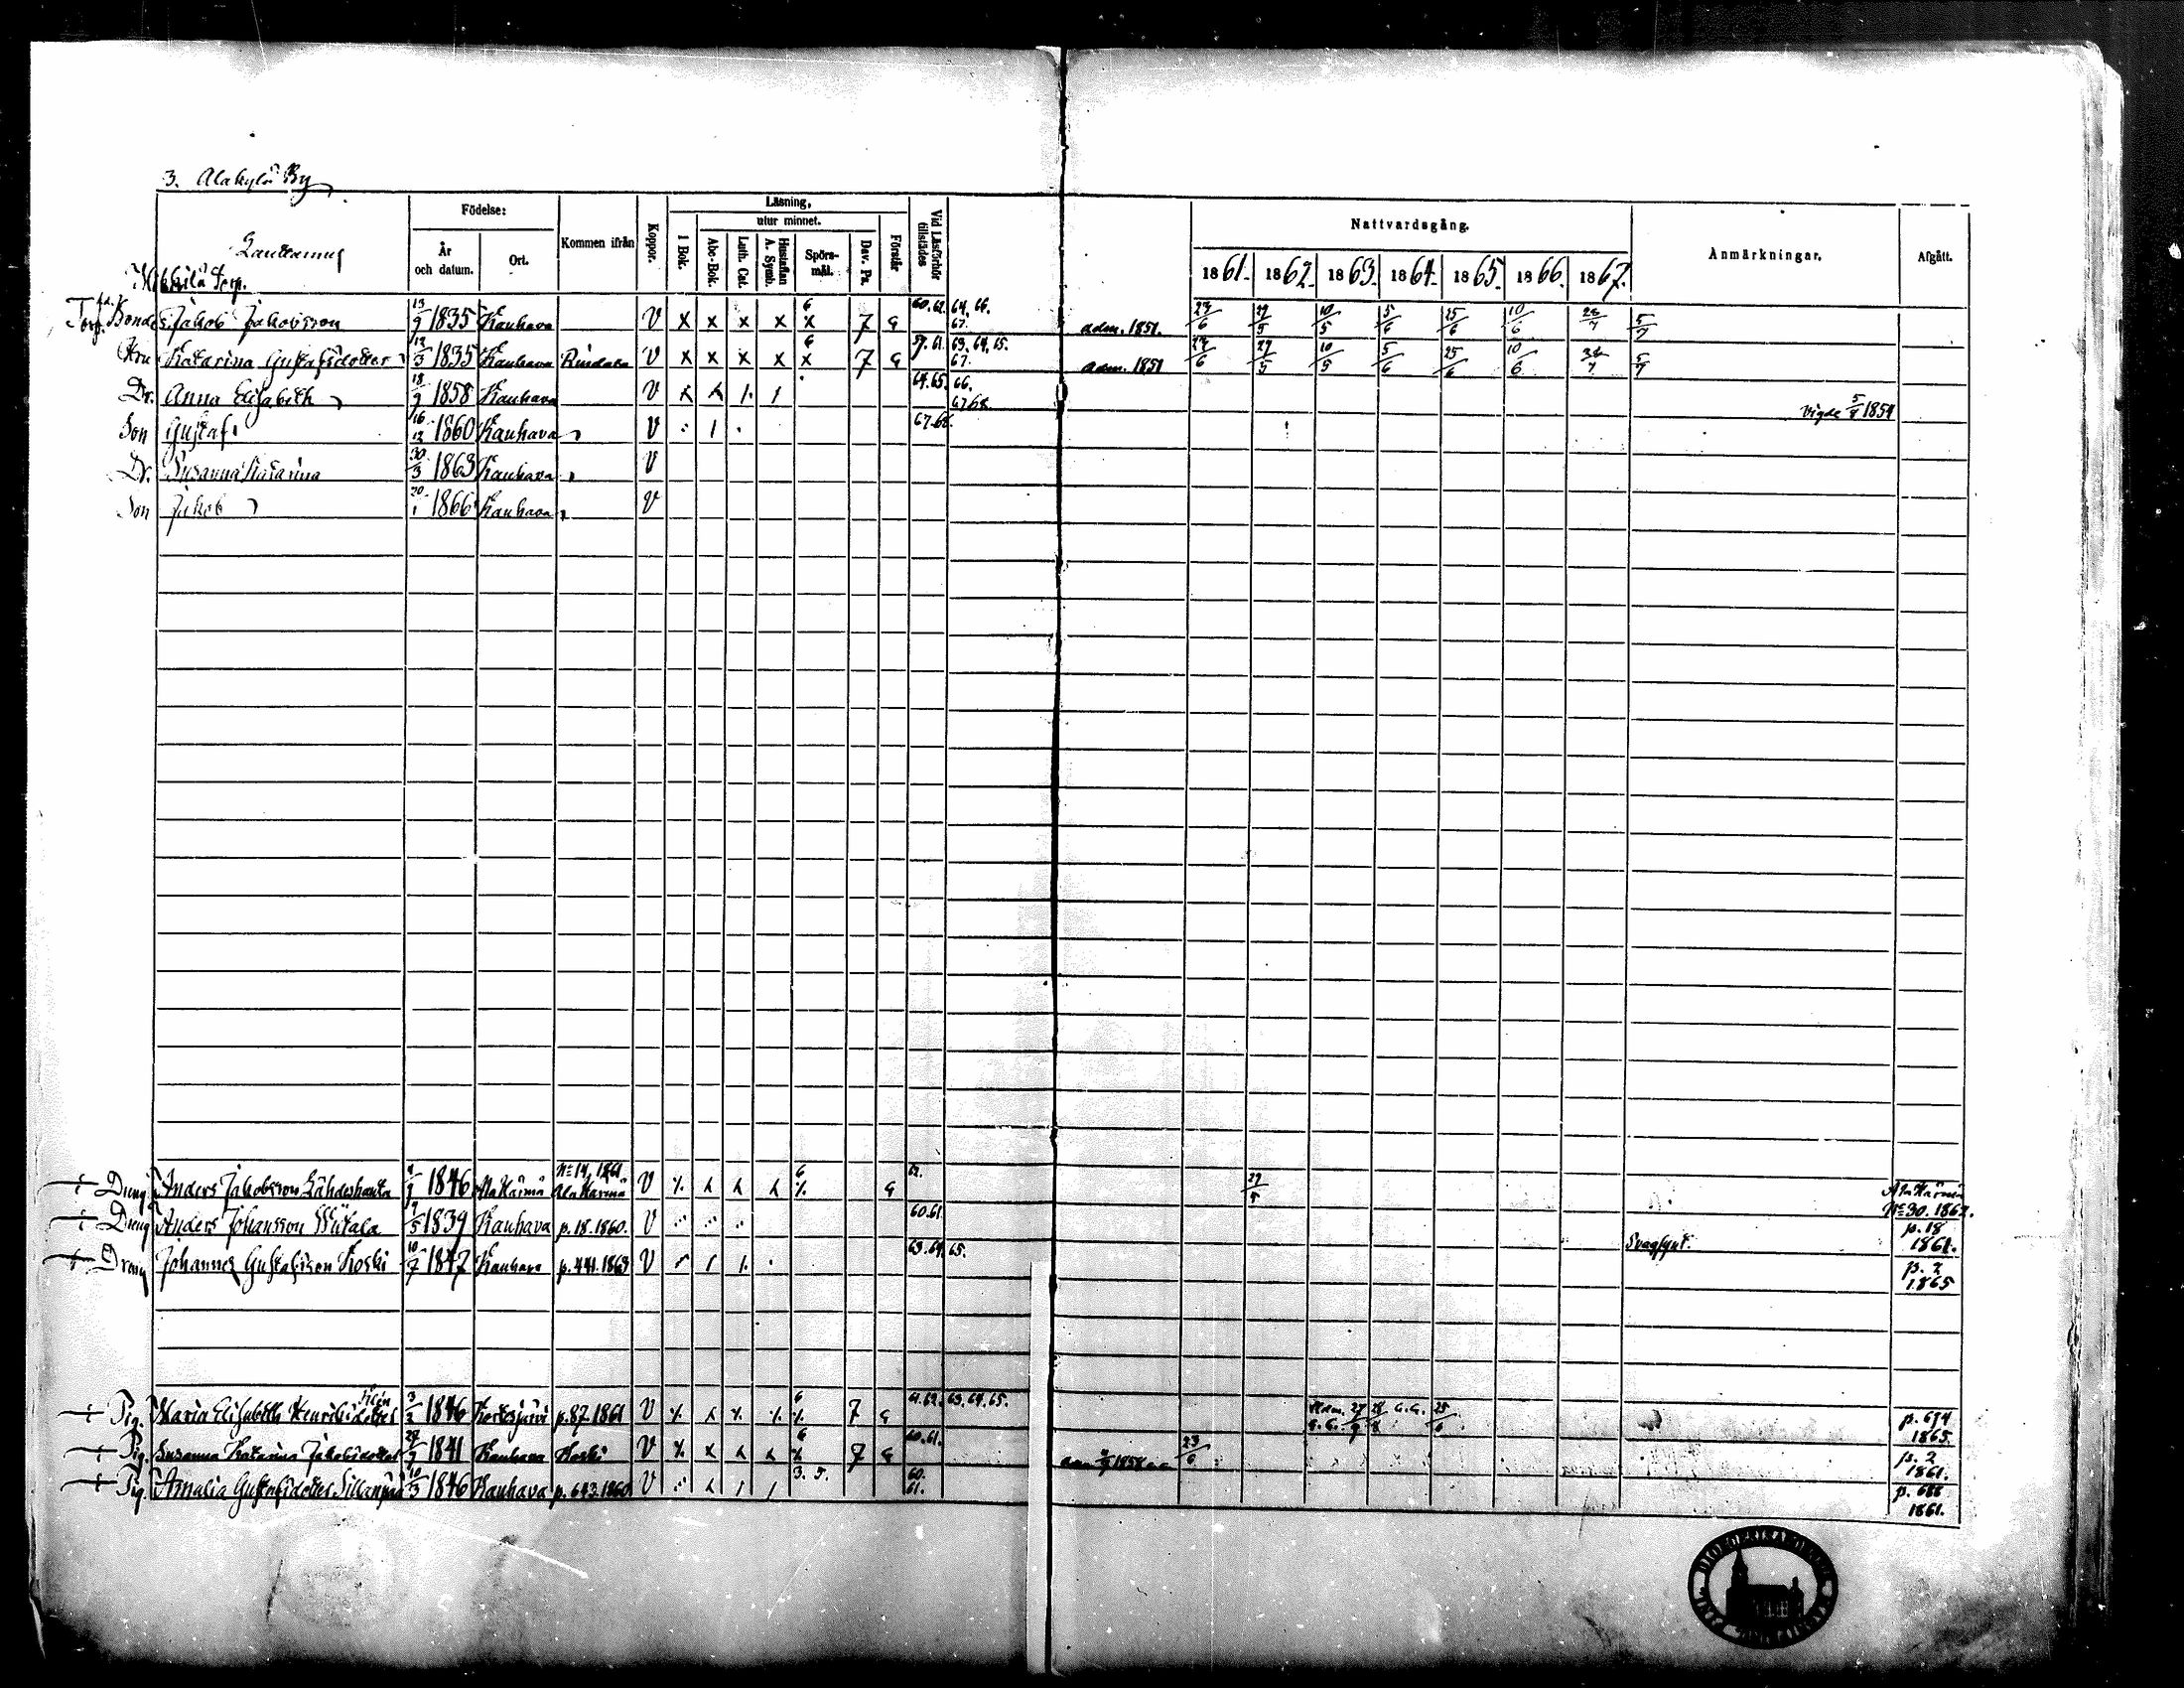 3. Alakylä By
Lautamus
Födelse:
År och datum.
Ort.
Kommen ifrån
Koppor.
Läsning,
utur minnet.
I Bok.
Abc-Bok.
Luth. Cat.
Hustaflan A. Symb.
Spörs-mål.
Dav. Ps.
Förstår
Vid Läsförhör tillstädes
Nattvardsgång.
1861. 1862. 1863. 1864. 1865. 1866. 1867.
Anmärkningar.
Afgått.
Torp.
Bonde s. Jakob Jakobsson 13/9 1835 Kauhava V x x x x 6 x 7 g 60.62. 64. 66. 67. adm. 1851. 23/6 29/5 10/5 5/6 25/6 10/6 5/7
Hru Katarina Gustafsdotter 12/3 1835 Kauhava V x x x x 6 x 7 g 59. 61. 63. 64. 65. 67. adm. 1851 29/5 10/5 5/6 25/6 10/6 5/7
Dr. Anna Elisabeth 18/9 1858 Kauhava V 64. 65. 66. 67 68. vigde 1854
Son Gustaf 16/12 1860 Kauhava V 67. 68.
Dr. Susanna Katarina 30/3 1863 Kauhava V
Son Jakob 20/1 1866 Kauhava V
Dreng Anders Jakobsson Lähdeshauta 1846 Ala Härmä No 14, 1861 Ala Härmä V 6 g 62. 29/5 Ala Härmä No 30. 1862.
Dreng Anders Johansson 1839 Kauhava p. 18. 1860. V 60. 61. p. 18 1861.
Dreng Johannes Gustafsson Koski 10/7 1847 Kauhava p. 441. 1863 V 63. 64. 65. Svagsynt. p. 2 1865
Pig. Maria Elisabeth Henriksdotter 3/2 1846 Kortesjärvi p. 87. 1861 V 6 7 g 61. 62. 63. 64. 65. Adm. 25/6 p. 674 1865.
Pig. Susanna Katarina Jakobsdotter 1841 Kauhava Koski V 6 7 g 60. 61. 1858 23/6 p. 2 1861.
Pig. Amalia Gustafsdotter Sillanpää 10/3 1846 Kauhava p. 643. 1860 V 3. 5. 60. 61. p. 688 1861.